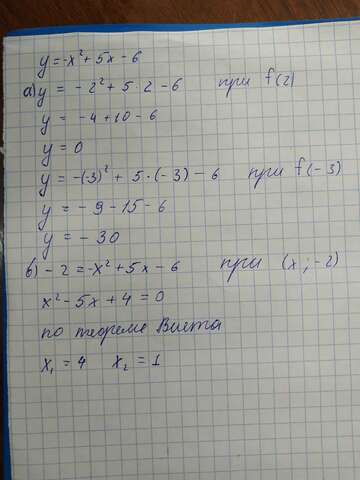 y=-x²+5x-6
а) y = -2²+5·2-6 при f(2)
y = -4+10-6
y=0
y=-(-3)²+5·(-3)-6 при f(-3)
y=-9-15-6
y=-30
в) -2=-x²+5x-6 при (x;-2)
x²-5x+4=0
по теореме Виета
x₁=4 x₂=1